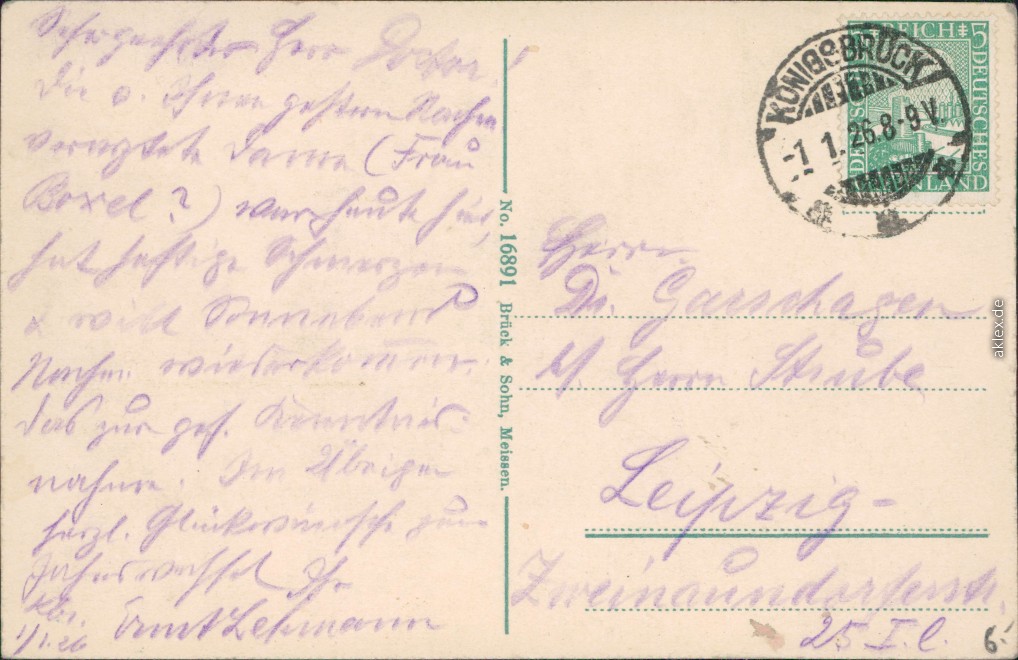 Sehr geehrter Herr Doctor!
Die v. Ihnen gestern Nachm.
Dame (Frau
Boxel?) war heute hier,
hat heftige Schmerzen
& will Sonnabend
Nachm. wiederkommen.
das zur gef. Kenntnis-
nahme. Im Übrigen
herzl. Glückwünsche zum
Jahreswechsel Ihr
Kbr. Ernst Lehmann
1/1.26
No. 16891 Brück & Sohn, Meissen.
KÖNIGSBRÜCK
-1 1.26.8-9V.
DEUTSCHES REICH 5
RHEINLAND
Herrn
Dr. Garschagen
b/ Herrn Strube
Leipzig-
Zweinaundorferstr.
25 I. l.
6.-
aklex.de